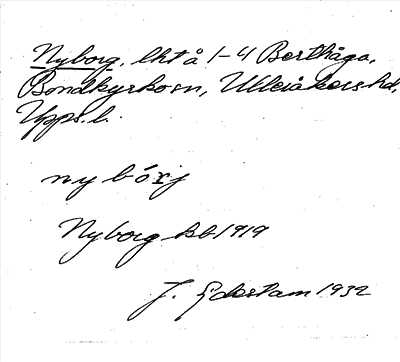 Nyborg, lht å 1-4 Berthåga,
Bondkyrko sn, Ulleråkers hd,
Upps. l.
ny bórj
Nyborg kb 1919
J. Edestam 1932